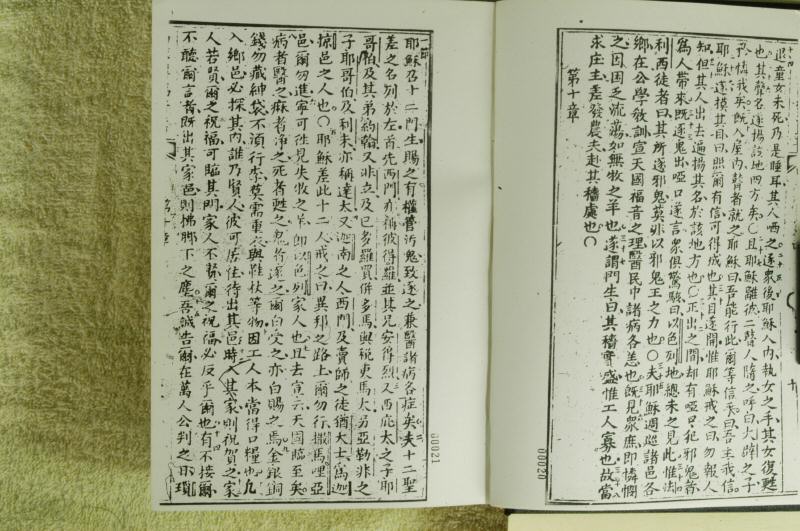 退童女未死乃是睡耳其人哂之逐眾後耶穌入內執女之手其女復甦
也其聲名遂揚該地四方矣○且耶穌離彼二瞽人隨之呼曰大辟之子
矜憐我矣既入屋內瞽者就之耶穌曰吾能行此爾等信乎曰吾主我信
耶穌遂摸其目曰照爾有信可得成也其目遂開惟耶穌戒之曰勿報人
知但其人出去遍揚其名於該地方也○正出之間却有啞口犯邪鬼者
為人帶來既逐鬼出啞口遂言眾俱驚駭曰以色列地總未之見此惟法
利西徒者曰其所逐邪鬼莫非以邪鬼王之力也○夫耶穌週廵諸邑各
鄉在公學教訓宣天國福音之理醫民中諸病各恙也既見眾庶即憐憫
之因困乏流蕩如無牧之羊也遂謂門生曰其穡實盛惟工人寡也故當
求庄主差發農夫赴其穡處也○
第十章
耶穌召十二門生賜之有權管污鬼致逐之兼醫諸病各症矣夫十二聖
差之名列於左首先西門亦稱彼得羅並其兄安得烈又西庇太之子耶
哥伯及其弟約翰又非立及巴多羅買併多馬與稅吏馬太另亞勒非之
子耶哥伯及利末亦稱達太又迦南之人西門及賣師之徒猶大士為迦
掠邑之人也○耶穌差此十二人戒之曰異邦之路上爾勿行撒馬哩亞
邑爾勿進寧可往見失牧之羊即以色列家人也且去宣云天國臨至矣
病者醫之痲者淨之死者甦之鬼者逐之爾白受之亦白賜之焉金銀銅
錢勿藏紳袋不須行李莫需重衣與惟杖等物因工人本當得口糧也凡
入鄉邑必探其內誰乃賢人彼可居住待出其邑時入其家則祝賀之家
人若賢爾之祝福可臨其門家人不賢爾之祝福必反乎爾也有不接爾
不聽爾言者既出其家邑則拂腳下之塵吾誠告爾在萬人公判之日
00021
00020